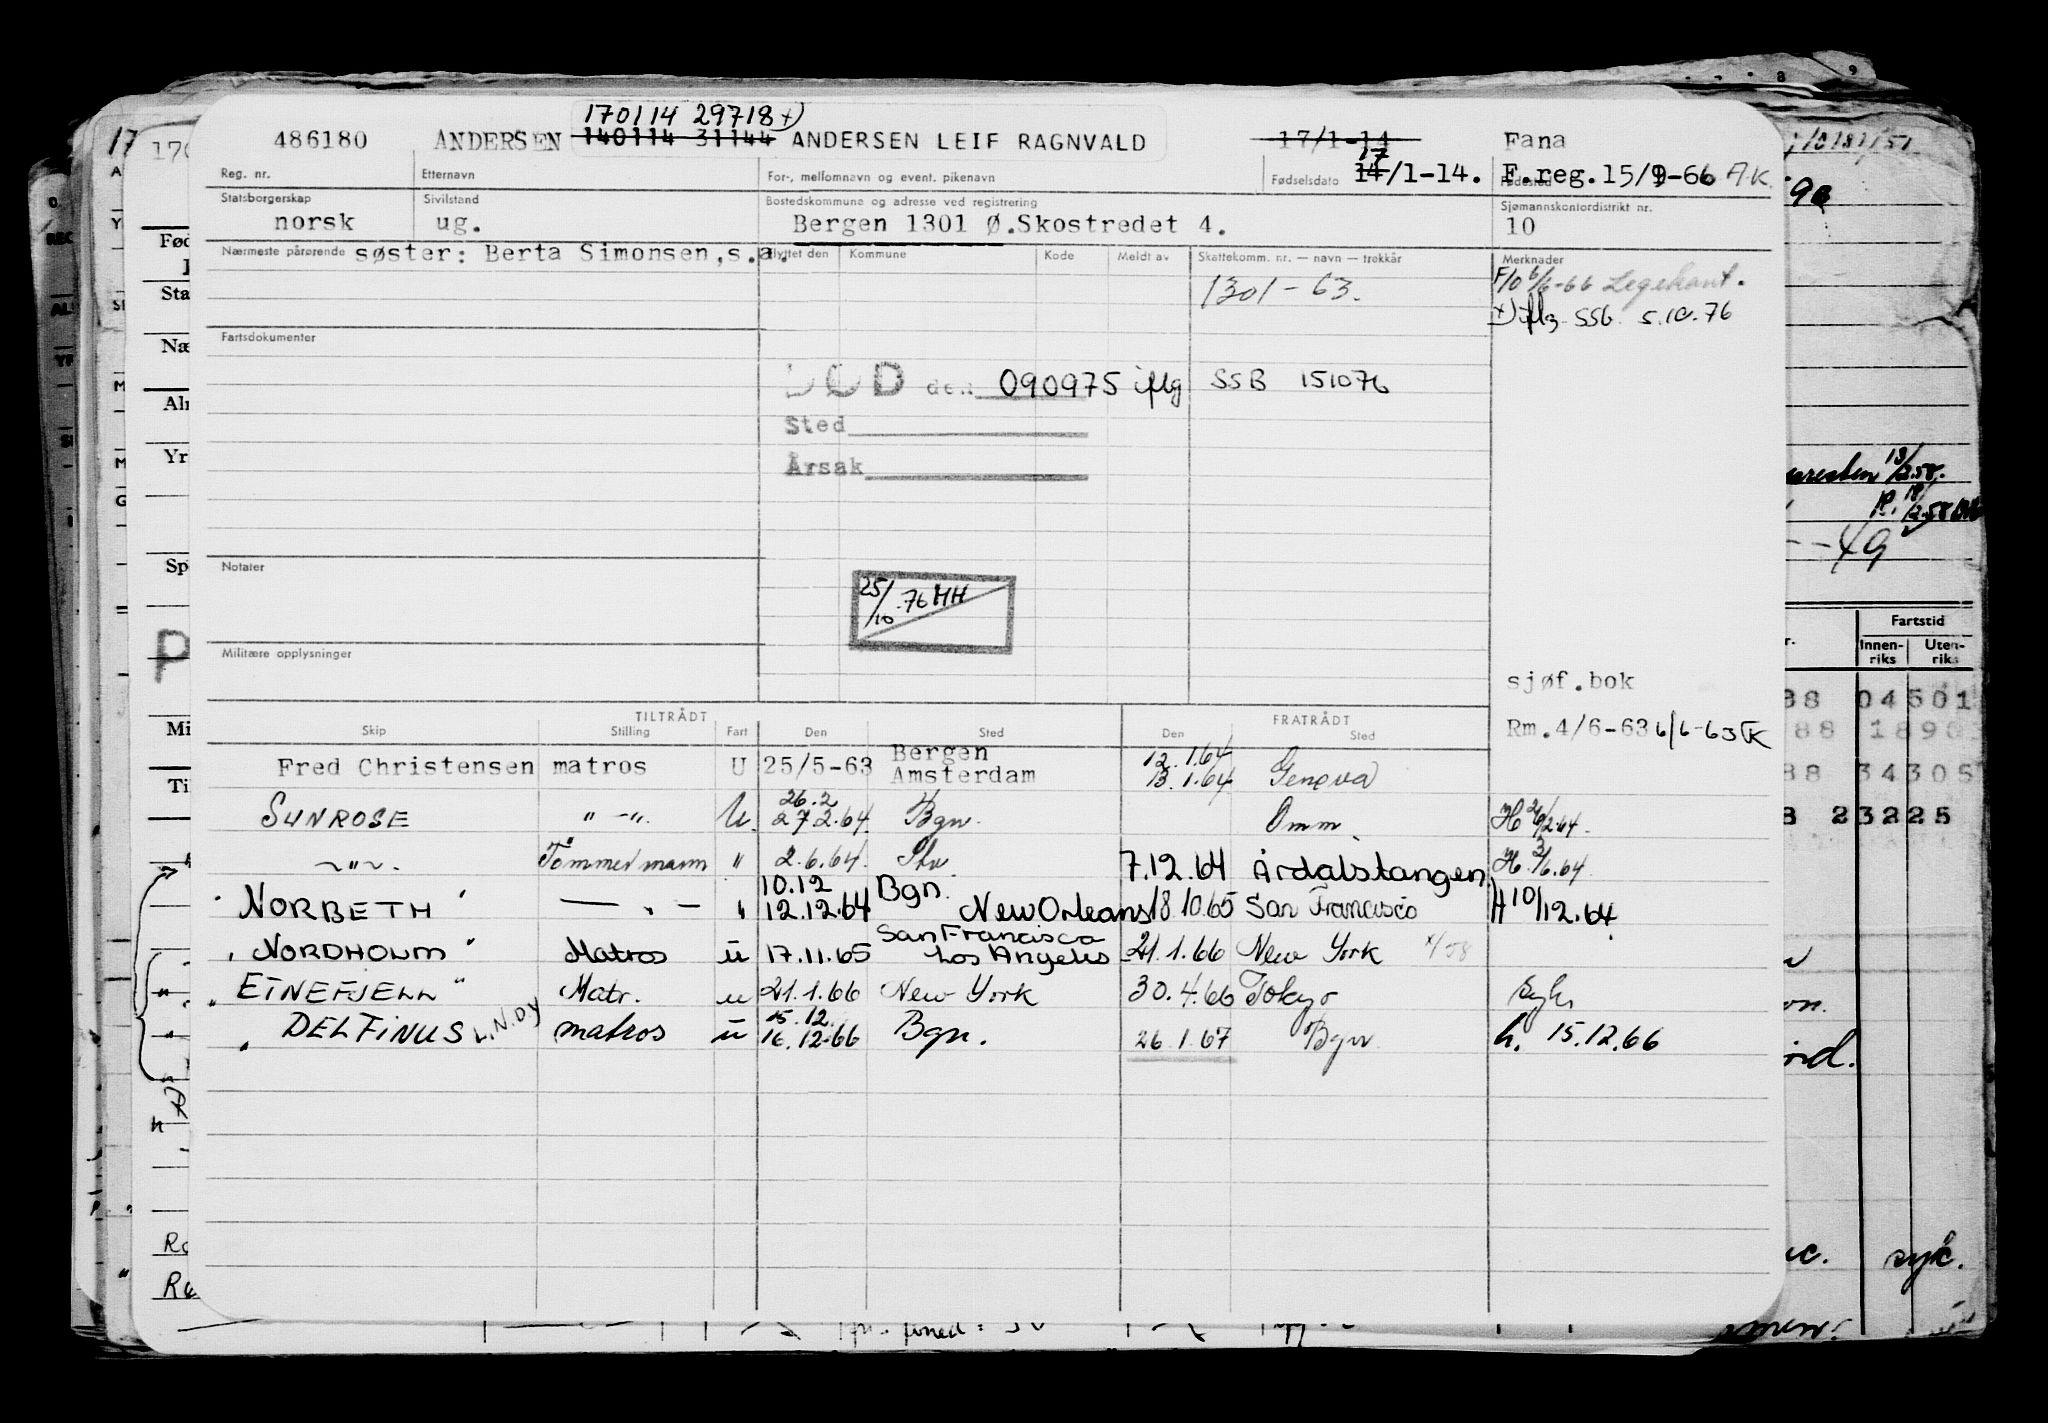 170114 29718 x)
486180 ANDERSEN 140114 31144 ANDERSEN LEIF RAGNVALD 17/1-14 Fana
17
14/1-14. F.reg.15/9-66 A.K.
Reg. nr. Etternavn For-, mellomnavn og event. pikenavn Fødselsdato Fødested
Statsborgerskap Sivilstand Bostedskommune og adresse ved registrering Sjømannskontordistrikt nr.
norsk ug. Bergen 1301 Ø.Skostredet 4. 10
Nærmeste pårørende søster: Berta Simonsen,s.a. Flyttet den Kommune Kode Meldt av Skattekomm. nr. — navn — trekkår Merknader
1301 - 63. F/O 6/6-66 Legekont.
x) iflg. SSB 5.10.76
Fartsdokumenter
DØD den 090975 iflg SSB 151076
Sted
Årsak
Notater
25/10-76 HH
Militære opplysninger
sjøf.bok
TILTRÅDT FRATRÅDT
Skip Stilling Fart Den Sted Den Sted
Rm.4/6-63 6/6-63 K
Fred Christensen matros U 25/5-63 Bergen Amsterdam 12.1.64 13.1.64 Genova
SUNROSE " - ". U. 26.2 27.2.64. Bgn. Omm. H 26/2.64.
- " -. Tömmermann " 2.6.64. Stv. 7.12.64 Årdalstangen H. 2/6.64.
" NORBETH " — " — " 10.12 12.12.64 Bgn. New Orleans 18.10.65 San Francisco H 10/12.64.
" NORDHOLM " Matros u 17.11.65 San Francisco Los Angeles 21.1.66 New York
" ETNEFJELL " Matr. u 21.1.66 New York 30.4.66 Tokyo Syk
" DELFINUS L.N.DY matros u 15.12. 16.12.66 Bgn. 26.1.67 Bgn. h. 15.12.66
Fartstid
Innen-riks Uten-riks
88 04501
88 1890
88 34305
8 23225
syk.